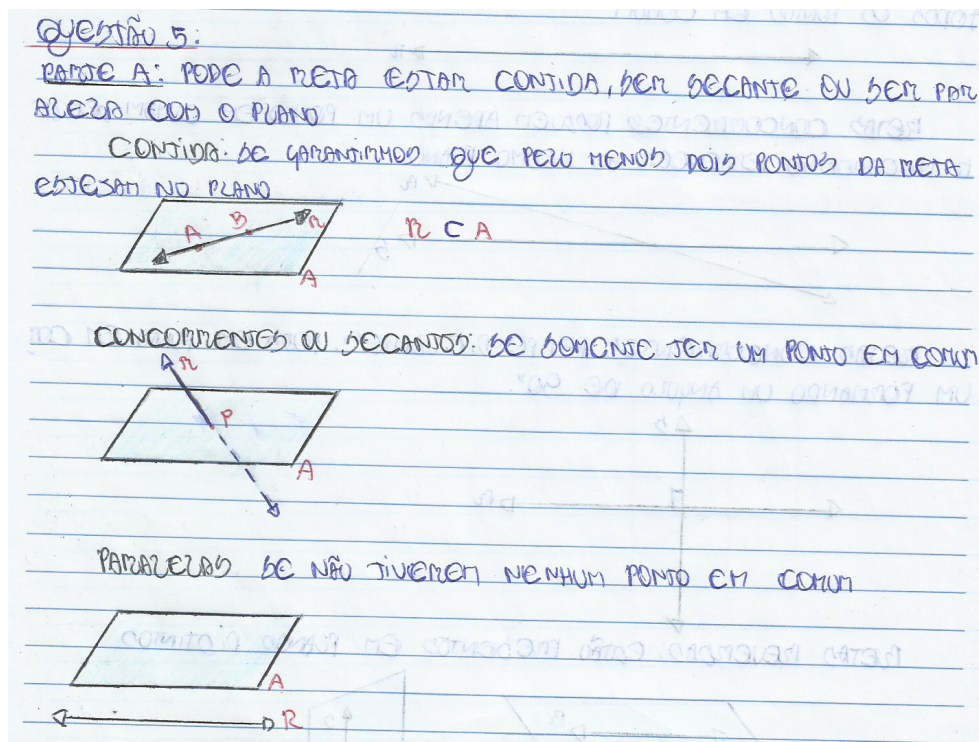 QUESTÃO 5:
PARTE A: PODE A RETA ESTAR CONTIDA, SER SECANTE OU SER PAR
ALELA COM O PLANO
CONTIDA: SE GARANTIRMOS QUE PELO MENOS DOIS PONTOS DA RETA
ESTEJAM NO PLANO
A B R
R ⊂ A
A
CONCORRENTES OU SECANTES: SE SOMENTE TER UM PONTO EM COMUM
R
P
A
PARALELAS SE NÃO TIVEREM NENHUM PONTO EM COMUM
A
R